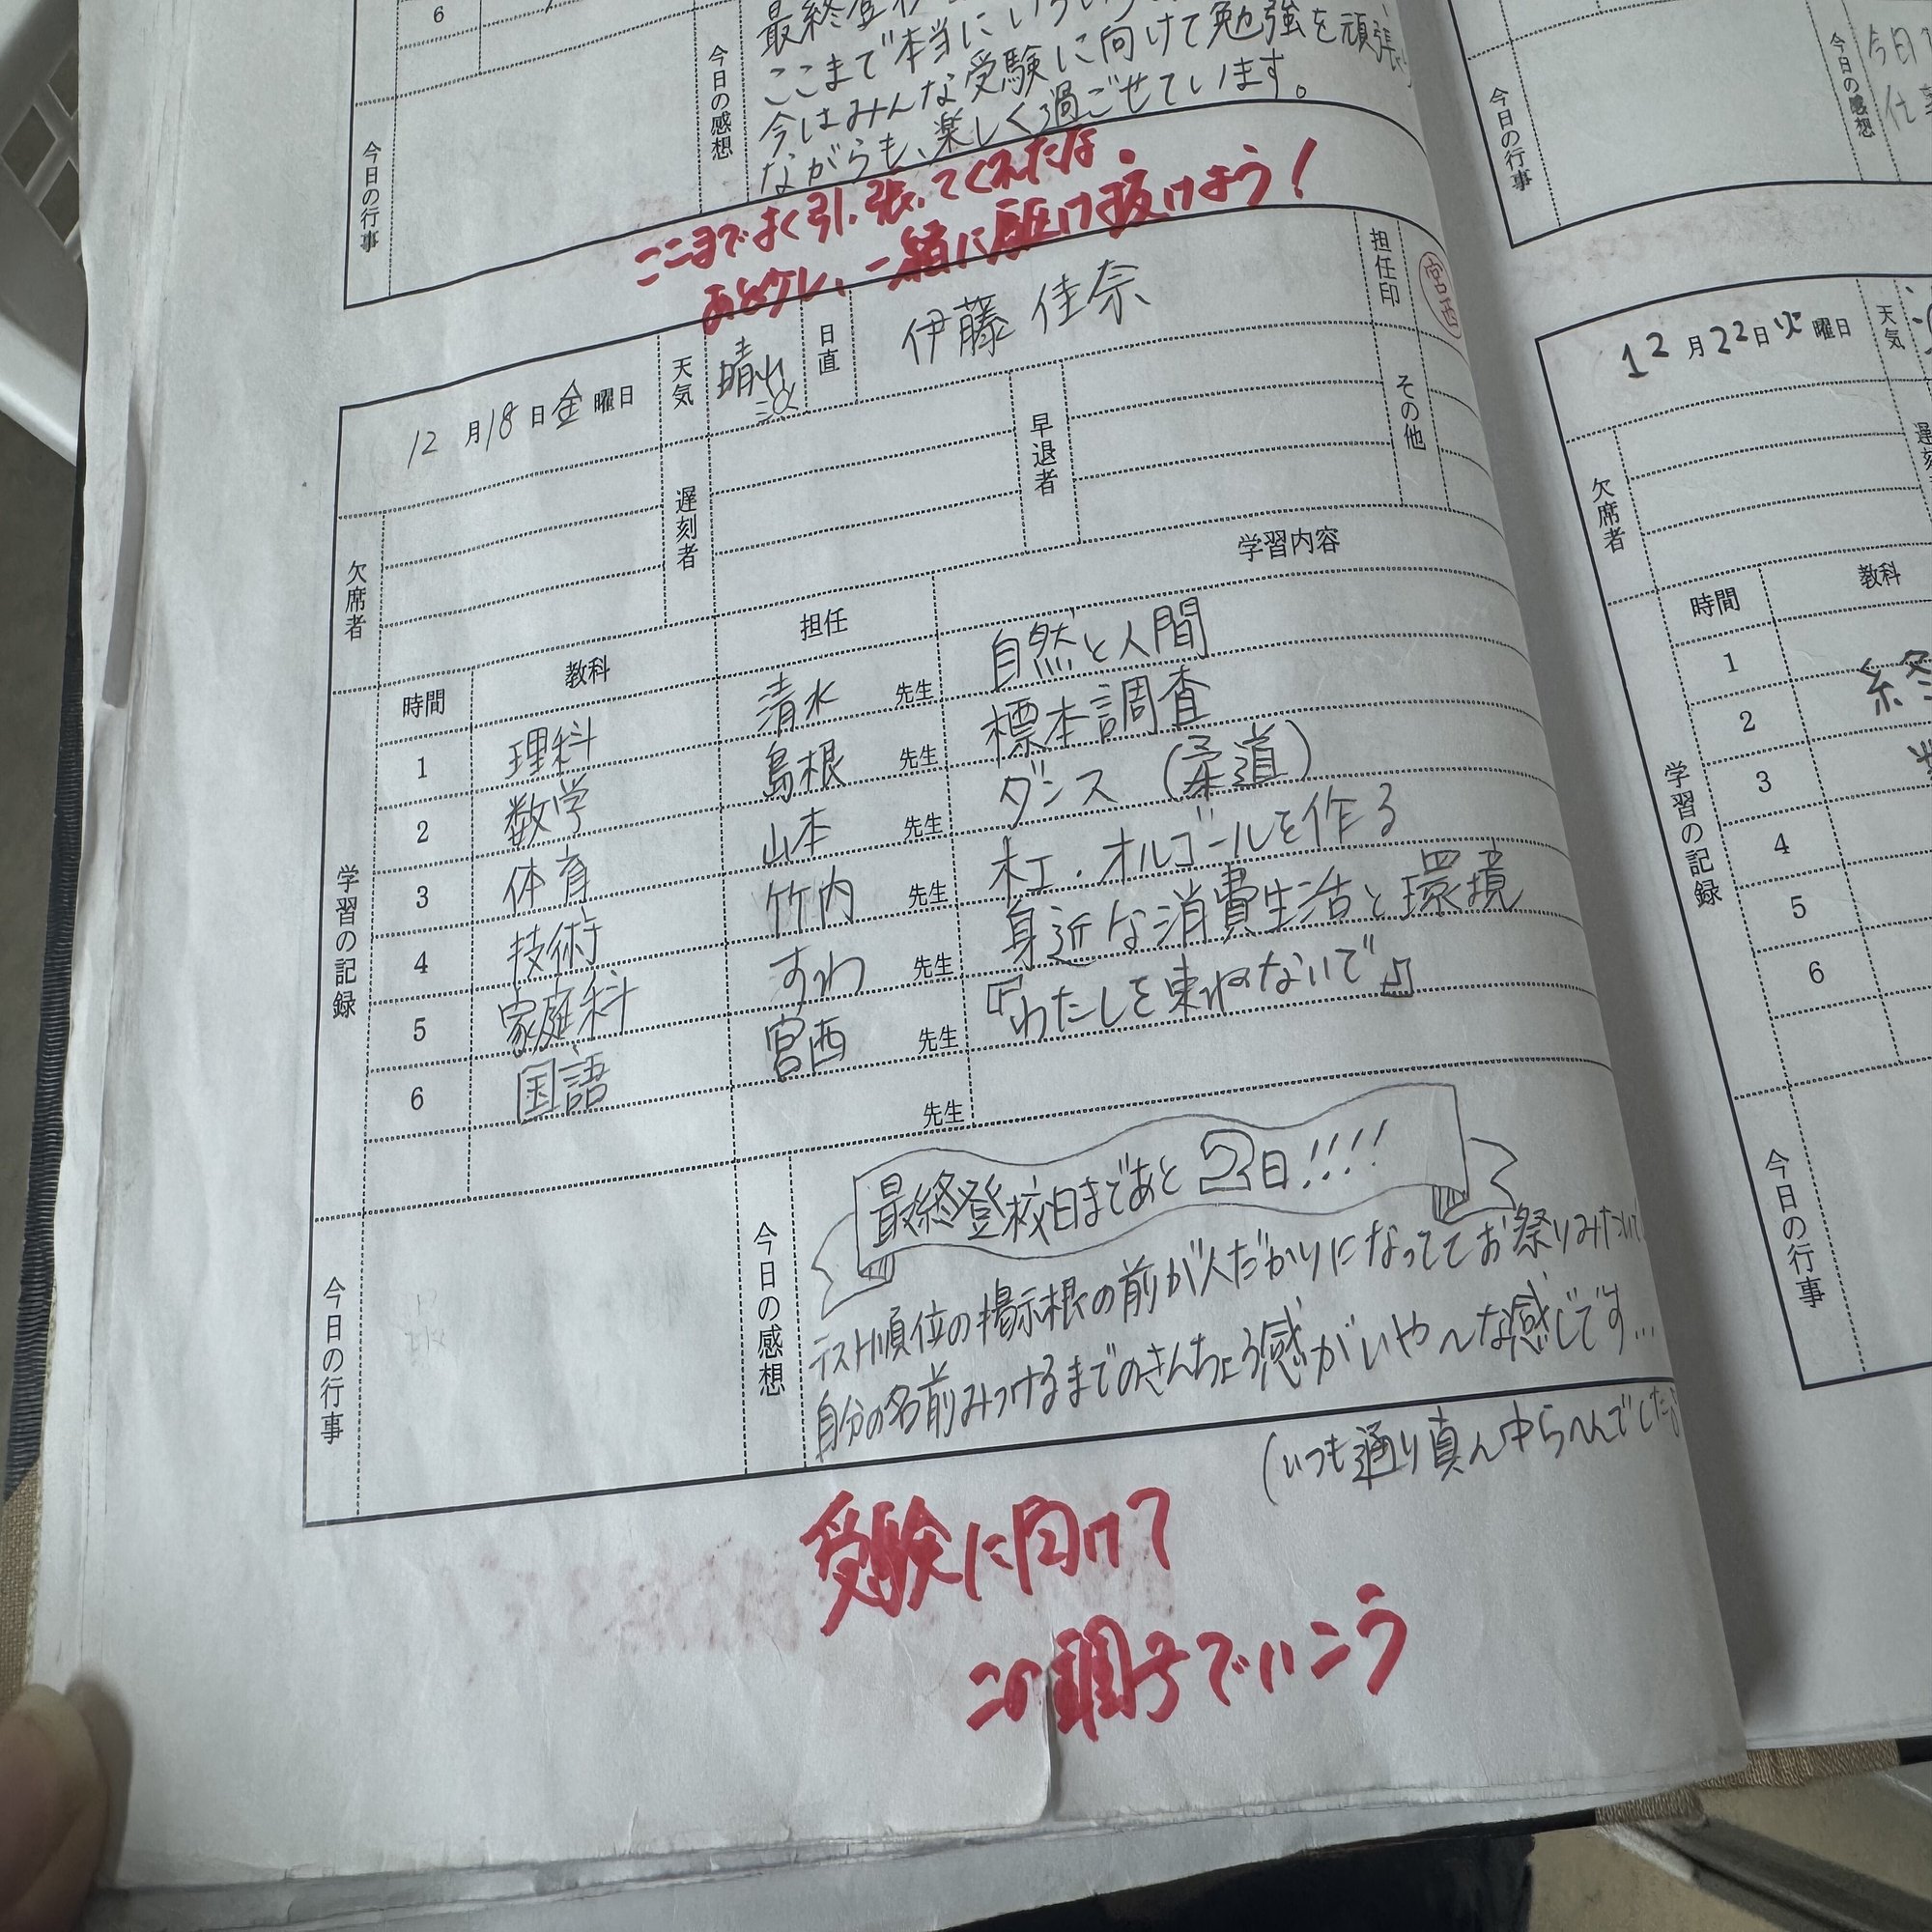 6
今日の行事
今日の感想
ここまで本当にいろいろ
今はみんな受験に向けて勉強を頑張り
ながらも、楽しく過ごせています。
ここまでよく引っ張ってくれたな。
あと少し、一緒に駆け抜けよう！
12月18日金曜日
天気
晴れ
日直
伊藤 佳奈
担任印
宮西
欠席者
遅刻者
早退者
その他
学習の記録
時間 教科 担任 学習内容
1 理科 清水 先生 自然と人間
2 数学 島根 先生 標本調査
3 体育 山本 先生 ダンス (柔道)
4 技術 竹内 先生 木工・オルゴールを作る
5 家庭科 すわ 先生 身近な消費生活と環境
6 国語 宮西 先生 『わたしを束ねないで』
先生
今日の行事
今日の感想
最終登校日まであと2日!!!!
テスト順位の掲示板の前が人だかりになっててお祭りみたい
自分の名前みつけるまでのきんちょう感がいや〜な感じです...
(いつも通り真ん中らへんでした
受験に向けて
この調子でいこう
今日の行事
今日の感想
今日
12月22日火曜日
天気
欠席者
学習の記録
時間 教科
1
2
3
4
5
6
今日の行事